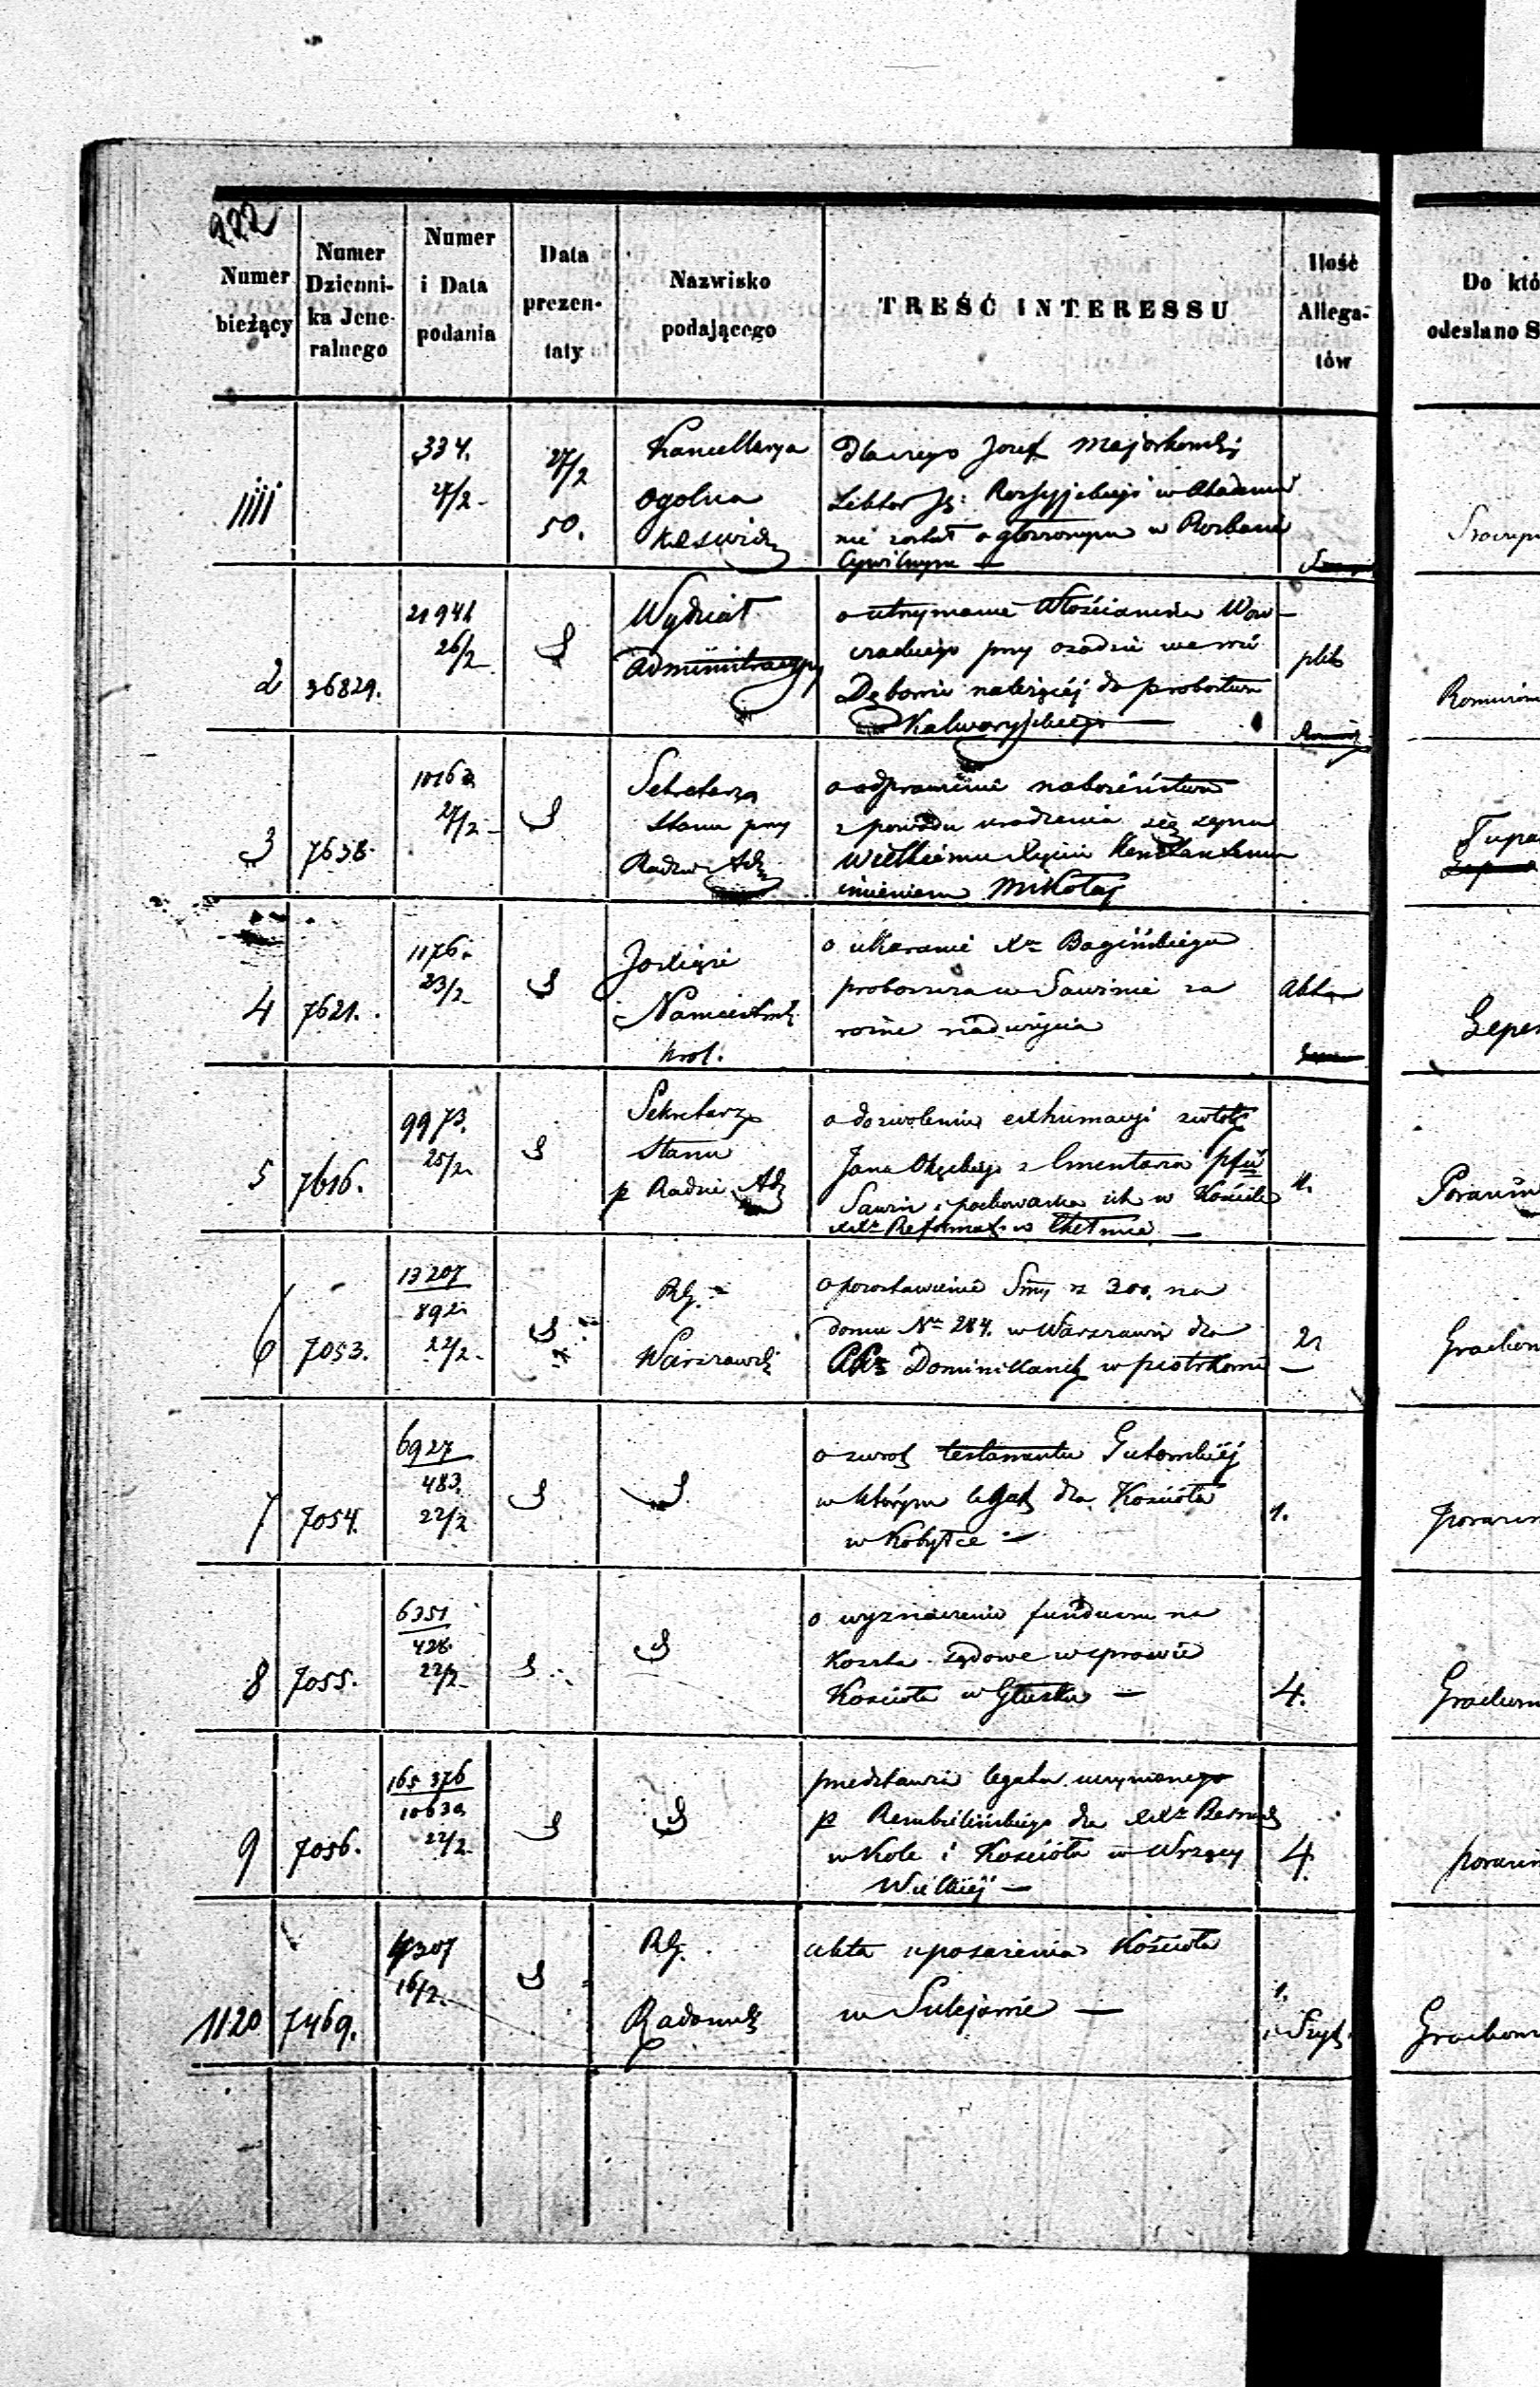 222
Numer bieżący
Numer Dzienni- ka Jene- ralnego
Numer i Data podania
Data prezen- taty
Nazwisko podającego
TREŚĆ INTERESSU
Ilość Allega- tów
Do któ
odesłano S
1111
334.
27/2
27/2
50.
Kancellarya
Ogolna
Dlaczego Jozef Majorkowski
Lektor Js: Rossyjskiego w Akademii
nie został ogłoszonym w Rozkazie
Cywilnym —
2
36829.
21941
26/2
Wydział
Administracyjny
o utrzymanie Włościanina Waw-
rzackiego przy osadzie we wsi
Dębowie należącéj do probostwa
Kalwaryjskiego —
plik
3
7638.
10163
27/2
Sekretarz
Stanu przy
Radzie Ad
o odprawienie nabożeństwa
z powodu urodzenia się syna
Wielkiemu Xięciu Konstantemu
imieniem Mikołaj
4
7621.
1176.
23/2
JOXięcie
Namiestnik
Krol.
o ukaranie Xa Bagińskiego
proboszcza w Sawinie za
rożne nadużycia
Akta
5
7616.
9973.
25/2
Sekretarz
Stanu
p Radzie Ad
o dozwolenie exhumacyi zwłok
Jana Okęckiego z Cmentarza pfii
Sawin i pochowania ich w Kościele
XXx Reformat. w Chełmie —
1.
6
7053.
13207
892
22/2
RG.
Warszawsk
o pozostawienie Smy rs 300. na
domu No 284. w Warszawie dla
Dominikanek w Piotrkowie
2
7
7054.
6927
483.
22/2
o zwrot testamentu Gutowskiéj
w którym legat dla Kościoła
w Kobyłce —
1.
8
7055.
6351
428.
22/2
o wyznaczenie funduszu na
Koszta sądowe w sprawie
Kościoła w Głusku —
4.
9
7056.
165376
10630
22/2
przedstawia legata uczynionego
p Rembielińskiego dla XXx Bernard
w Kole i Kościoła w Wrzący
Wielkiéj —
4.
1120
7469.
4307
16/2.
RG.
Radomsk
akta uposażenia Kościoła
w Sulejowie —
1.